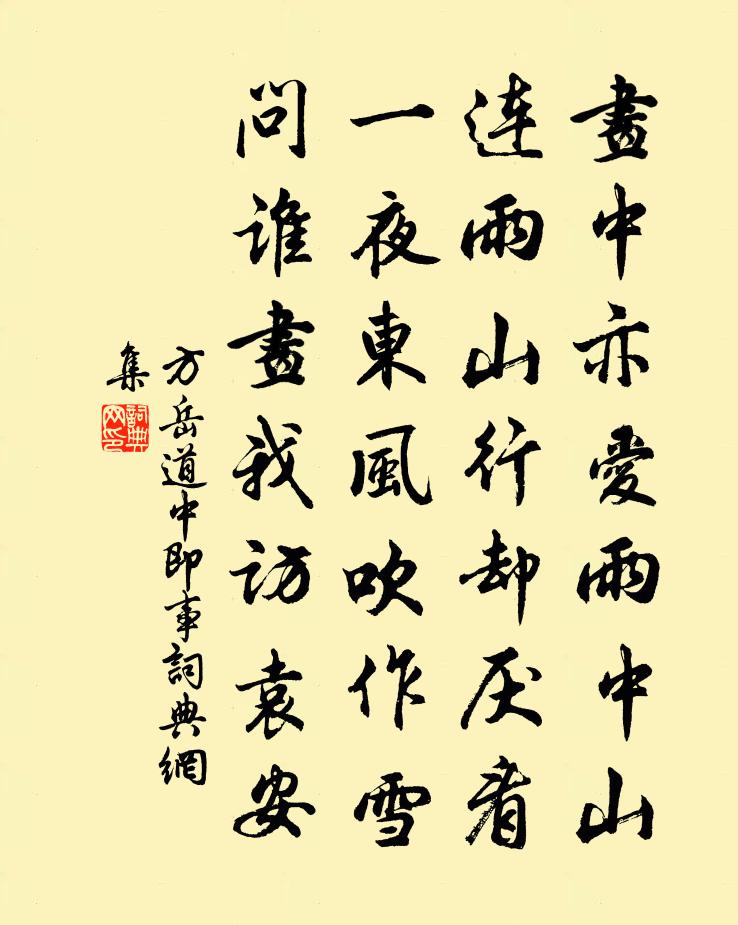 畫中亦愛雨中山
連雨山行却厌看
一夜東風吹作雪
問誰畫我訪袁安
方岳道中即事詞典網
集
詞典
网印